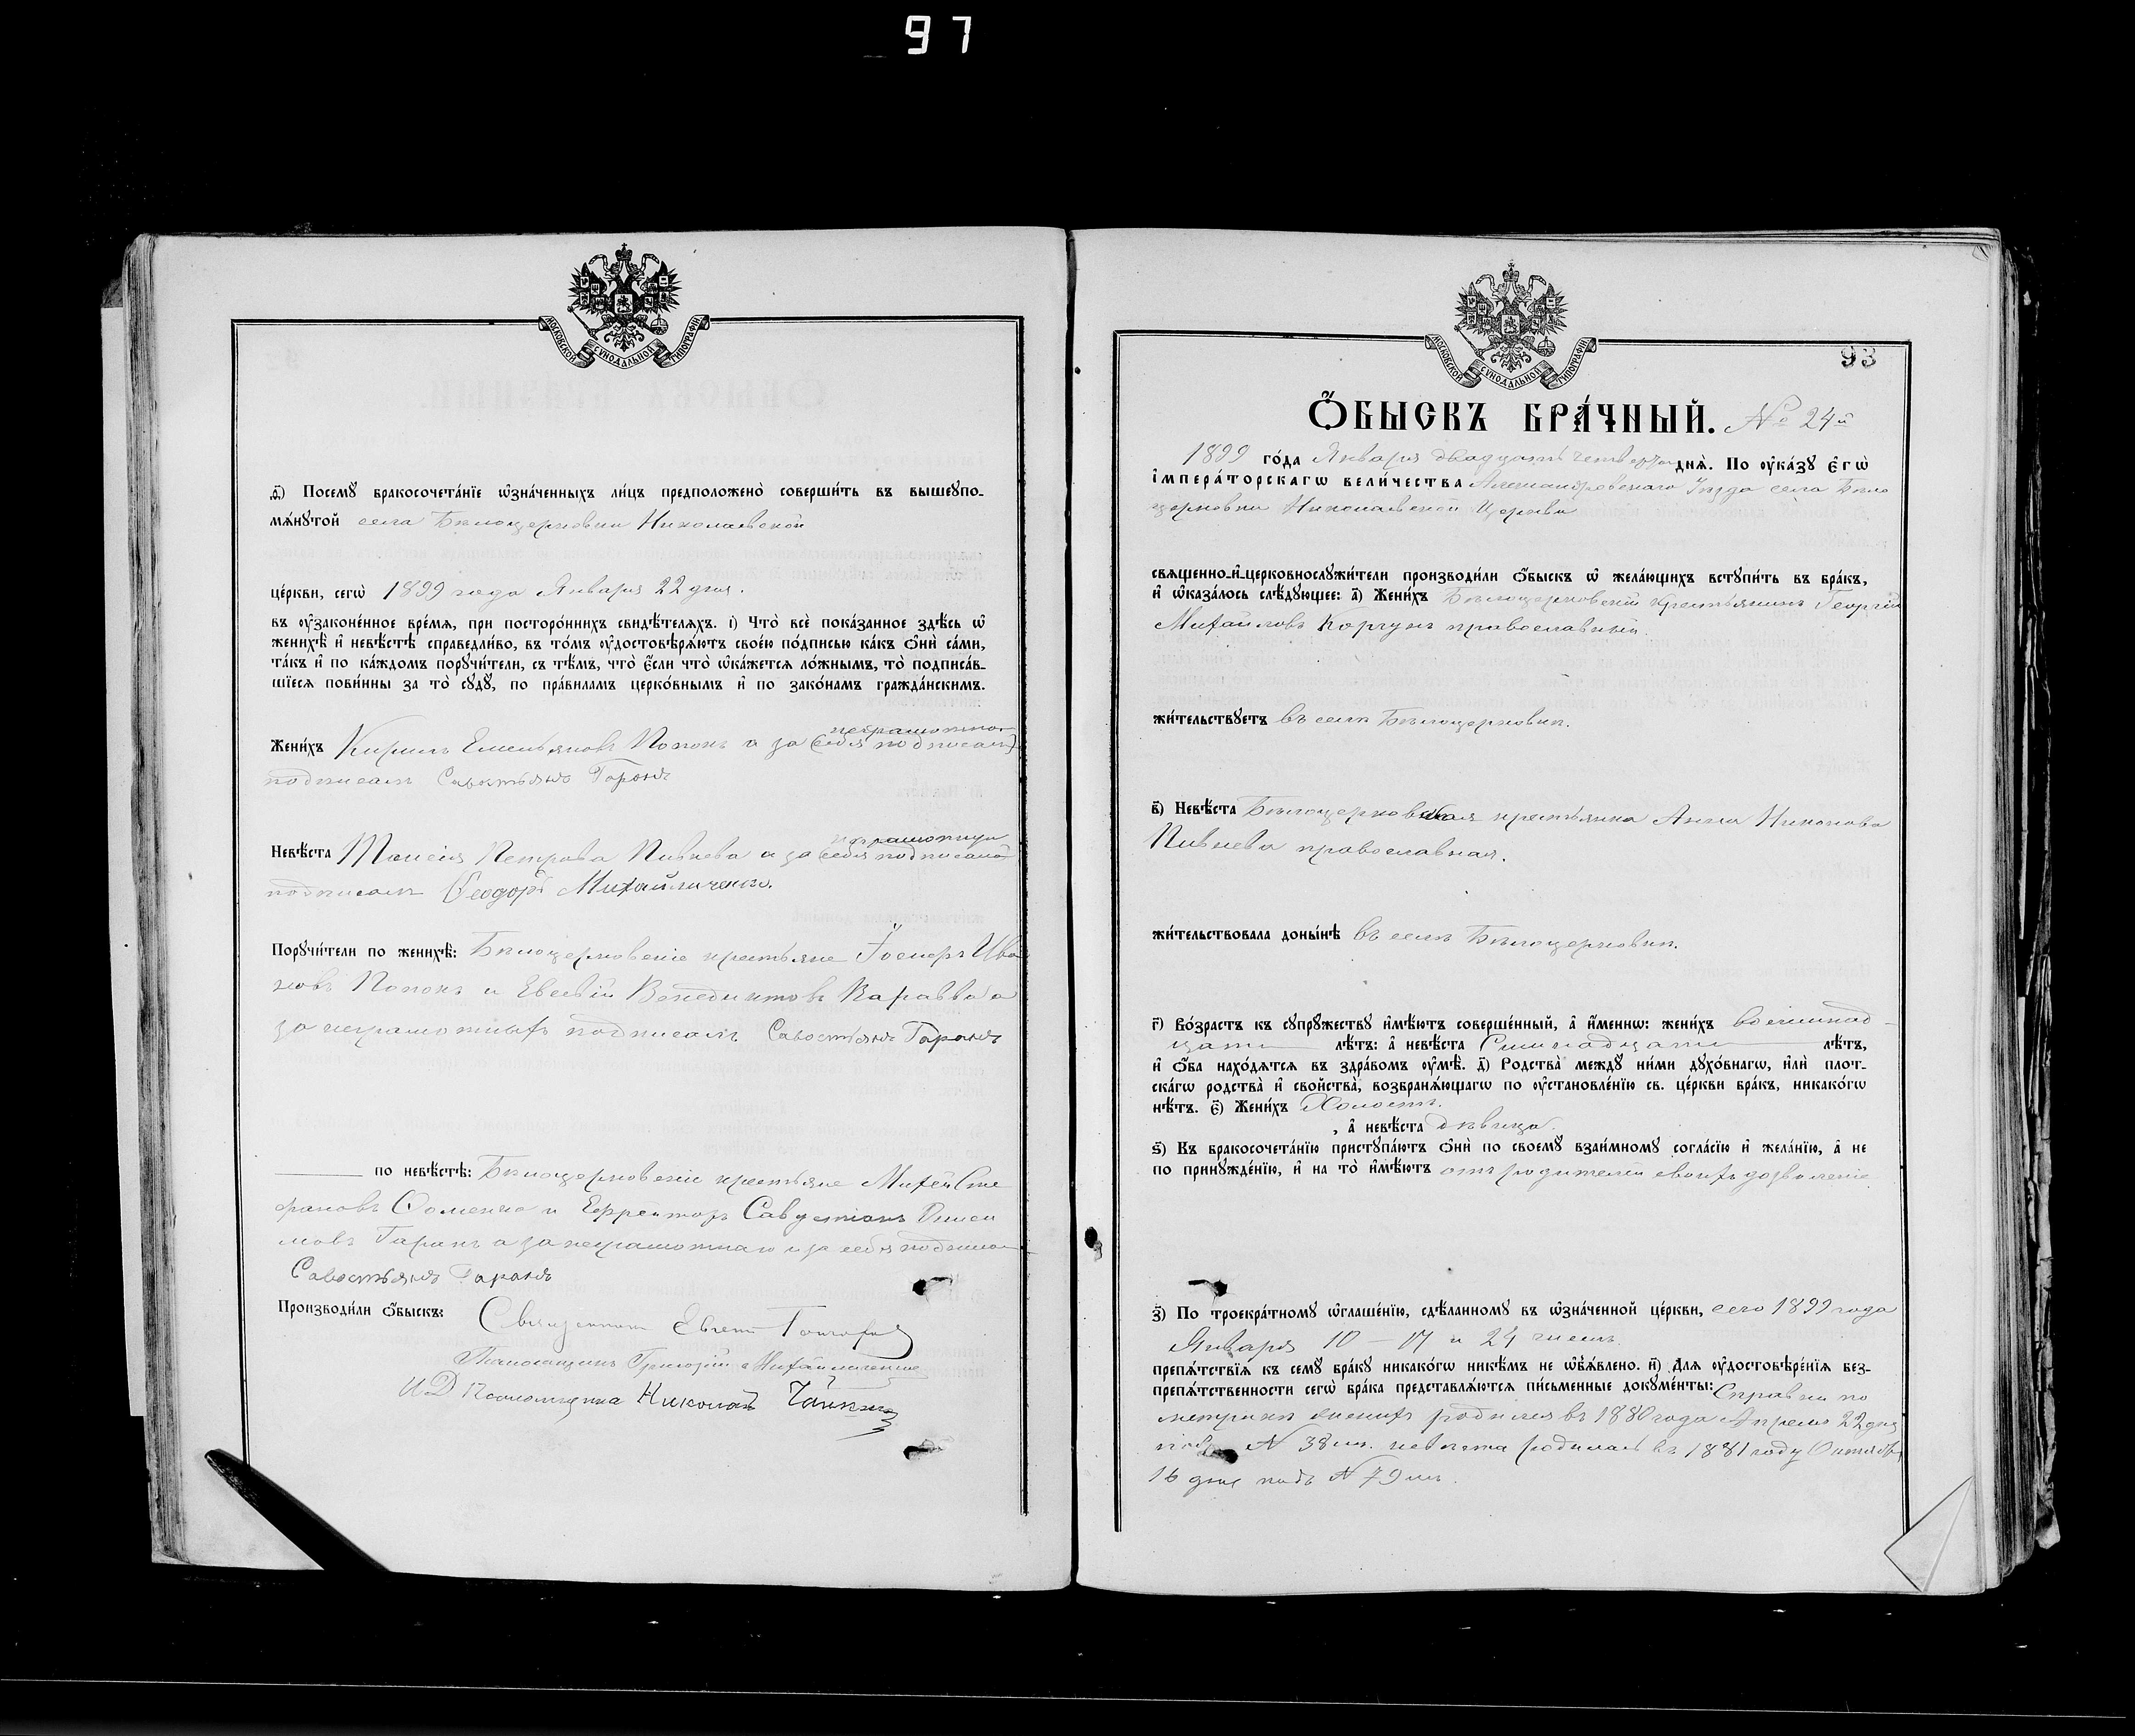 97
МОСКОВСКОЙ СѴНОДАЛЬНОЙ ТИПОГРАФІИ
ѳ҃) Посемꙋ̀ бракосочета́нїе ѡ҆зна́ченныхъ ли́цъ предположено̀ соверши́ть въ вышеꙋпо-
мѧ́нꙋтой села Бѣлоцерковки Николаевской
це́ркви, сегѡ̀ 1899 года Января 22 дня.
въ ᲂу҆зако́ненное вре́мѧ, при посторо́ннихъ свидѣ́телѧхъ. і) Что̀ всѐ пока́занное здѣ́сь ѡ҆
женихѣ̀ и҆ невѣ́стѣ справедли́во, въ то́мъ ᲂу҆достовѣрѧ́ютъ свое́ю по́дписью ка́къ ѻ҆нѝ са́ми,
та́къ и҆ по ка́ждомъ порꙋчи́тели, съ тѣ́мъ, что̀ є҆́сли что̀ ѡ҆ка́жетсѧ ло́жнымъ, то̀ подписа́в-
шїесѧ пови́нны за то̀ сꙋдꙋ̀, по пра́виламъ церко́внымъ и҆ по зако́намъ гражда́нскимъ.
неграмотнаго
Жени́хъ Кирилъ Емельяновъ Попокъ а за (себя подписалъ)
подписалъ Савостьянъ Гаранъ
неграмотную
Невѣ́ста Таисія Петрова Пивнева а за (себя подписала)
подписалъ Ѳеодоръ Михайличенко.
Порꙋчи́тели по женихѣ̀: Бѣлоцерковскіе крестьяне Іосифъ Ива
новъ Попокъ и Евсевій Венедиктовъ Каравва а
за неграмотныхъ подписалъ Савостьянъ Гаранъ
по невѣ́стѣ: Бѣлоцерковскіе крестьяне Михей Сте
фановъ Ѳоменко и Ефрейторъ Савустіанъ
мовъ Гаранъ а за неграмотнаго и за себя подписал
Савостьянъ Гаранъ
Производи́ли ѻ҆́быскъ: Священникъ Евгеній
Псаломщикъ Григорій Михайличенко
И Д Псаломщика Николай
МОСКОВСКОЙ СѴНОДАЛЬНОЙ ТИПОГРАФІИ
93
Ѻ҆́БЫСКЪ БРА́ЧНЫЙ. № 24й
1899 го́да Января двадцать четвертаго днѧ̀. По ᲂу҆ка́зꙋ Є҆гѡ̀
І҆мпера́торскагѡ вели́чества Александровскаго Уѣзда села Бѣло
церковки Николаевской Церкви
свѧщенно-и҆-церковнослꙋжи́тели производи́ли ѻ҆́быскъ ѡ҆ жела́ющихъ вступи́ть въ бра́къ,
и҆ ѡ҆каза́лось слѣ́дꙋющее: а҃) Жени́хъ Бѣлоцерковскій крестьянинъ Георгій
Михайловъ Коргунъ православный.
жи́тельствꙋетъ въ селѣ Бѣлоцерковкѣ.
в҃) Невѣ́ста Бѣлоцерковская крестьянка Анна Никонова
Пивнева православная.
жи́тельствовала доны́нѣ въ селѣ Бѣлоцерковкѣ.
г҃) Во́зрастъ къ сꙋпрꙋжествꙋ̀ и҆мѣ́ютъ соверше́нный, а҆ и҆́меннѡ: жени́хъ восемнад-
цати лѣ́тъ: а҆ невѣ́ста Семнадцати лѣ́тъ,
и҆ ѻ҆́ба нахо́дѧтсѧ въ здра́вомъ ᲂу҆мѣ̀. д҃) Родства̀ междꙋ̀ ни́ми дꙋхо́внагѡ, и҆лѝ плот-
ска́гѡ родства̀ и҆ сво́йства̀, возбранѧ́ющагѡ по ᲂу҆становле́нїю св. це́ркви бра́къ, никако́гѡ
нѣ́тъ. є҃) Жени́хъ Холостъ.
, а҆ невѣ́ста дѣвица.
ѕ҃) Къ бракосочета́нїю пристꙋпа́ютъ ѻ҆нѝ по своемꙋ̀ взаи́мномꙋ согла́сїю и҆ жела́нїю, а҆ не
по принꙋжде́нїю, и҆ на то̀ и҆мѣ́ютъ отъ родителей своихъ дозволеніе.
з҃) По троекра́тномꙋ ѡ҆глаше́нїю, сдѣ́ланномꙋ въ ѡ҆зна́ченной це́ркви, сего 1899 года
Января 10 – 17 и 24 чиселъ
препѧ́тствїѧ къ семꙋ̀ бра́кꙋ никако́гѡ никѣ́мъ не ѡ҆б̾ѧ́влено. и҃) Длѧ ᲂу҆достовѣре́нїѧ без-
препѧ́тственности сегѡ̀ бра́ка представлѧ́ютсѧ пи́сьменные докꙋме́нты: Справки по
метрикѣ женихъ родился въ 1880 года Апрѣля 22 дня
подъ N 38 мъ. невѣста родилась въ 1881 году Октября
16 дня подъ N 79 мъ.